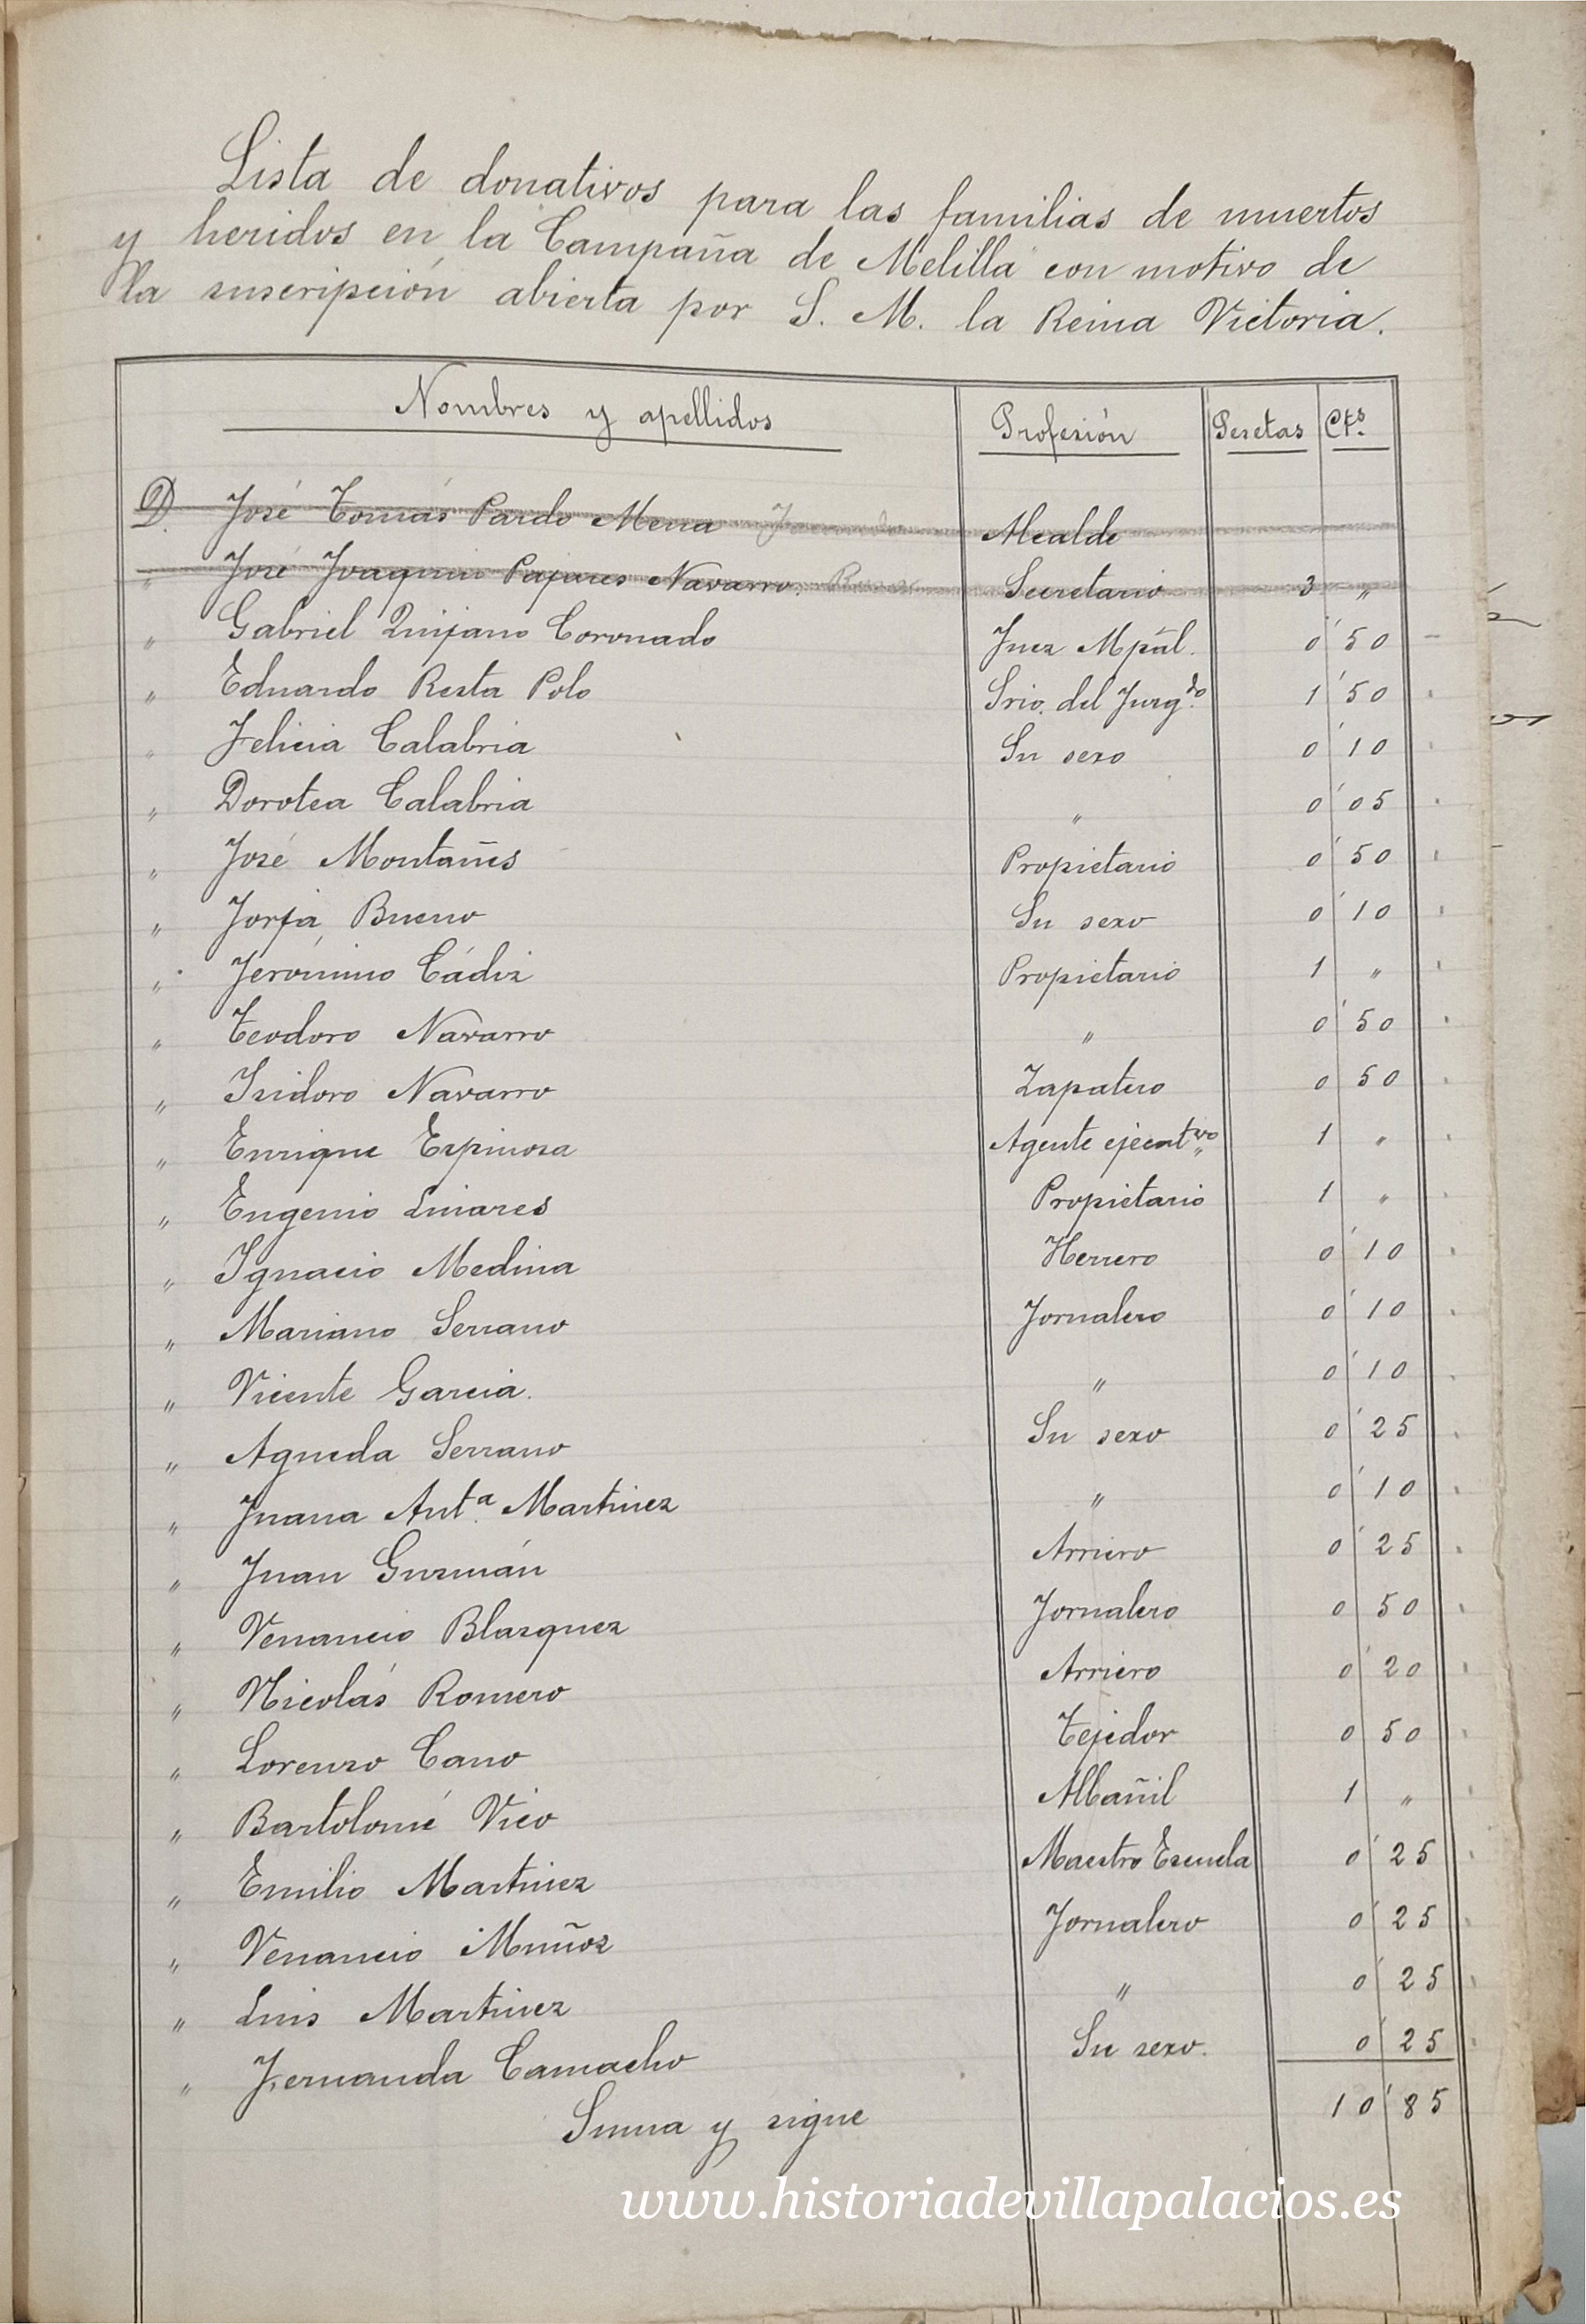 Lista de donativos para las familias de muertos
y heridos en la Campaña de Melilla con motivo de
la suscripción abierta por S. M. la Reina Victoria.
Nombres y apellidos Profesión Pesetas Cts.
D. José Tomás Pardo Mena Alcalde
" José Joaquin Pajares Navarro. Secretario 3 "
" Gabriel Quijano Coronado Juez Mpal. 0'50
" Eduardo Resta Polo Srio. del Juzgdo. 1'50
" Felicia Calabria Su sexo 0'10
" Dorotea Calabria " 0'05
" José Montañés Propietario 0'50
" Jorja Bueno Su sexo 0'10
" Jerónimo Cádiz Propietario 1 "
" Teodoro Navarro " 0'50
" Isidoro Navarro Zapatero 0'50
" Enrique Espinosa Agente ejecutvo. 1 "
" Eugenio Linares Propietario 1 "
" Ignacio Medina Herrero 0'10
" Mariano Serrano Jornalero 0'10
" Vicente Garcia. " 0'10
" Agueda Serrano Su sexo 0'25
" Juana Anta. Martinez " 0'10
" Juan Guzmán Arriero 0'25
" Venancio Blazquez Jornalero 0'50
" Nicolás Romero Arriero 0'20
" Lorenzo Cano Tejidor 0'50
" Bartolomé Vico Albañil 1 "
" Emilio Martinez Maestro Escuela 0'25
" Venancio Muñoz Jornalero 0'25
" Luis Martinez " 0'25
" Fernanda Camacho Su sexo. 0'25
Suma y sigue 10'85
www.historiadevillapalacios.es